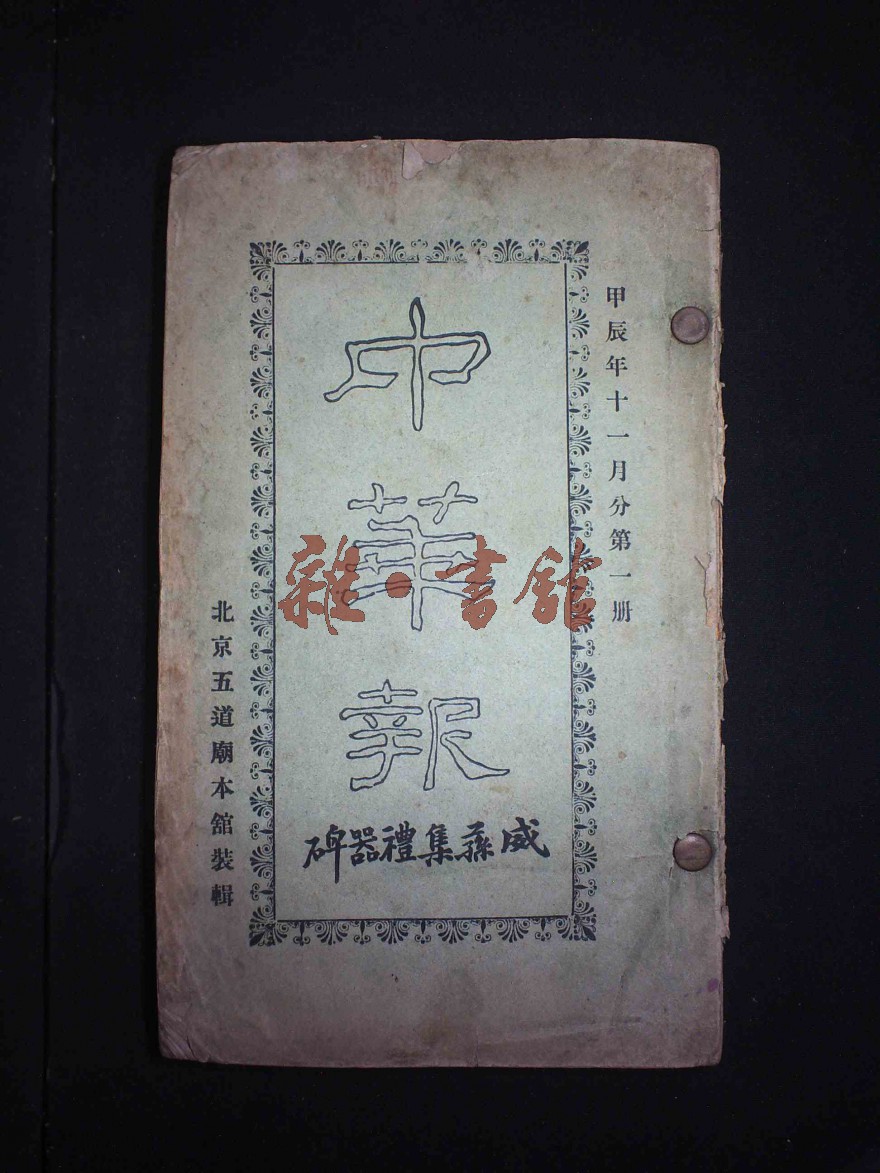 甲辰年十一月分第一册
中華報
威蓀集禮器碑
北京五道廟本舘裝輯
雜·書舘